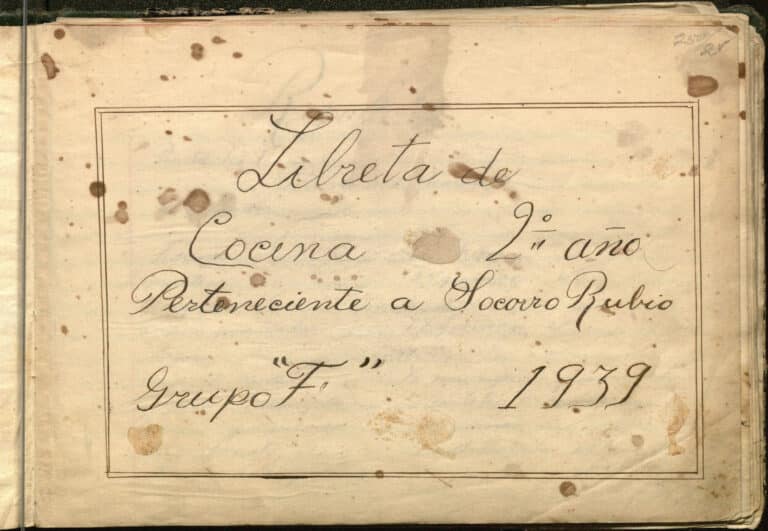 Libreta de
Cocina 2.º año
Perteneciente a Socorro Rubio
Grupo "F" 1939